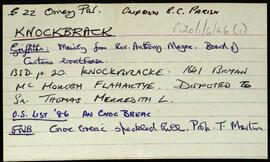 E 22 Omey Par. CLIFDEN R.C. PARISH
P120/1/6/66 (i)
KNOCKBRACK
Griffith: Mainly from Rev. Anthony Magee. Board of
Customs
BSD p. 20. KNOCKBRACKE. 1641 BRYAN
Mc MOROGH FLAHARTYE. DISPOSED TO
SR. THOMAS MERREDITH L.
O.S. LIST '86 AN CNOC BREAC
FNB Cnoc breac speckled hill. Prop. T. Martin